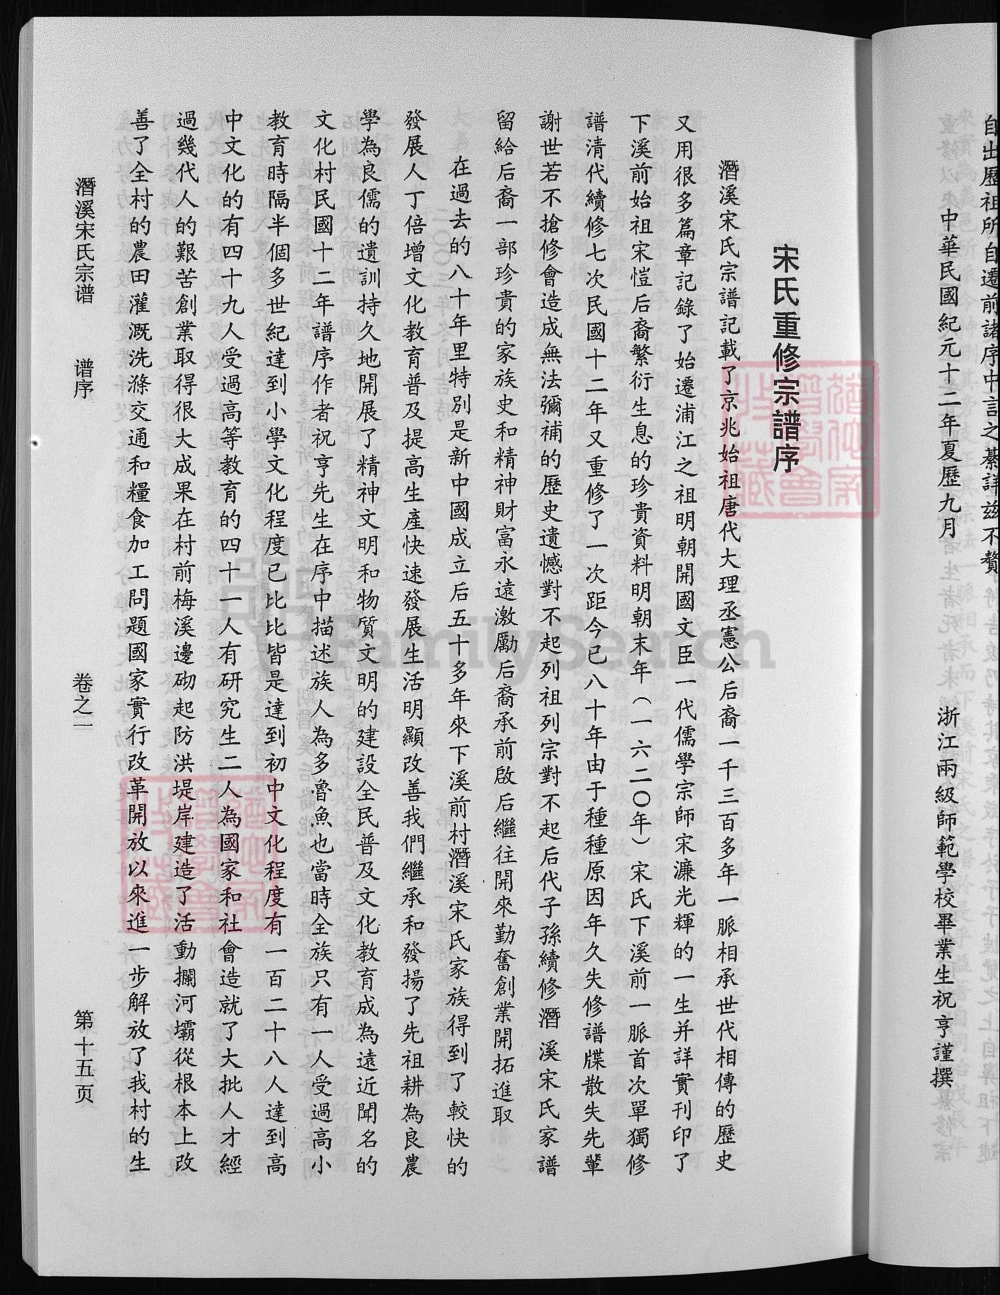 自出歷祖所自遷前諸序中言之綦詳茲不贅
中華民國紀元十二年夏歷九月 浙江兩級師範學校畢業生祝亨謹撰
宋氏重修宗譜序
潛溪宋氏宗譜記載了京兆始祖唐代大理丞憲公后裔一千三百多年一脈相承世代相傳的歷史
又用很多篇章記錄了始遷浦江之祖明朝開國文臣一代儒學宗師宋濂光輝的一生并詳實刊印了
下溪前始祖宋愷后裔繁衍生息的珍貴資料明朝末年（一六二〇年）宋氏下溪前一脈首次單獨修
譜清代續修七次民國十二年又重修了一次距今已八十年由于種種原因年久失修譜牒散失先輩
謝世若不搶修會造成無法彌補的歷史遺憾對不起列祖列宗對不起后代子孫續修潛溪宋氏家譜
留給后裔一部珍貴的家族史和精神財富永遠激勵后裔承前啟后繼往開來勤奮創業開拓進取
在過去的八十年里特別是新中國成立后五十多年來下溪前村潛溪宋氏家族得到了較快的
發展人丁倍增文化教育普及提高生產快速發展生活明顯改善我們繼承和發揚了先祖耕為良農
學為良儒的遺訓持久地開展了精神文明和物質文明的建設全民普及文化教育成為遠近聞名的
文化村民國十二年譜序作者祝亨先生在序中描述族人為多魯魚也當時全族只有一人受過高小
教育時隔半個多世紀達到小學文化程度已比比皆是達到初中文化程度有一百二十八人達到高
中文化的有四十九人受過高等教育的四十一人有研究生二人為國家和社會造就了大批人才經
過幾代人的艱苦創業取得很大成果在村前梅溪邊砌起防洪堤岸建造了活動攔河壩從根本上改
善了全村的農田灌溉洗滌交通和糧食加工問題國家實行改革開放以來進一步解放了我村的生
潛溪宋氏宗谱 谱序 卷之一 第十五页
FamilySearch